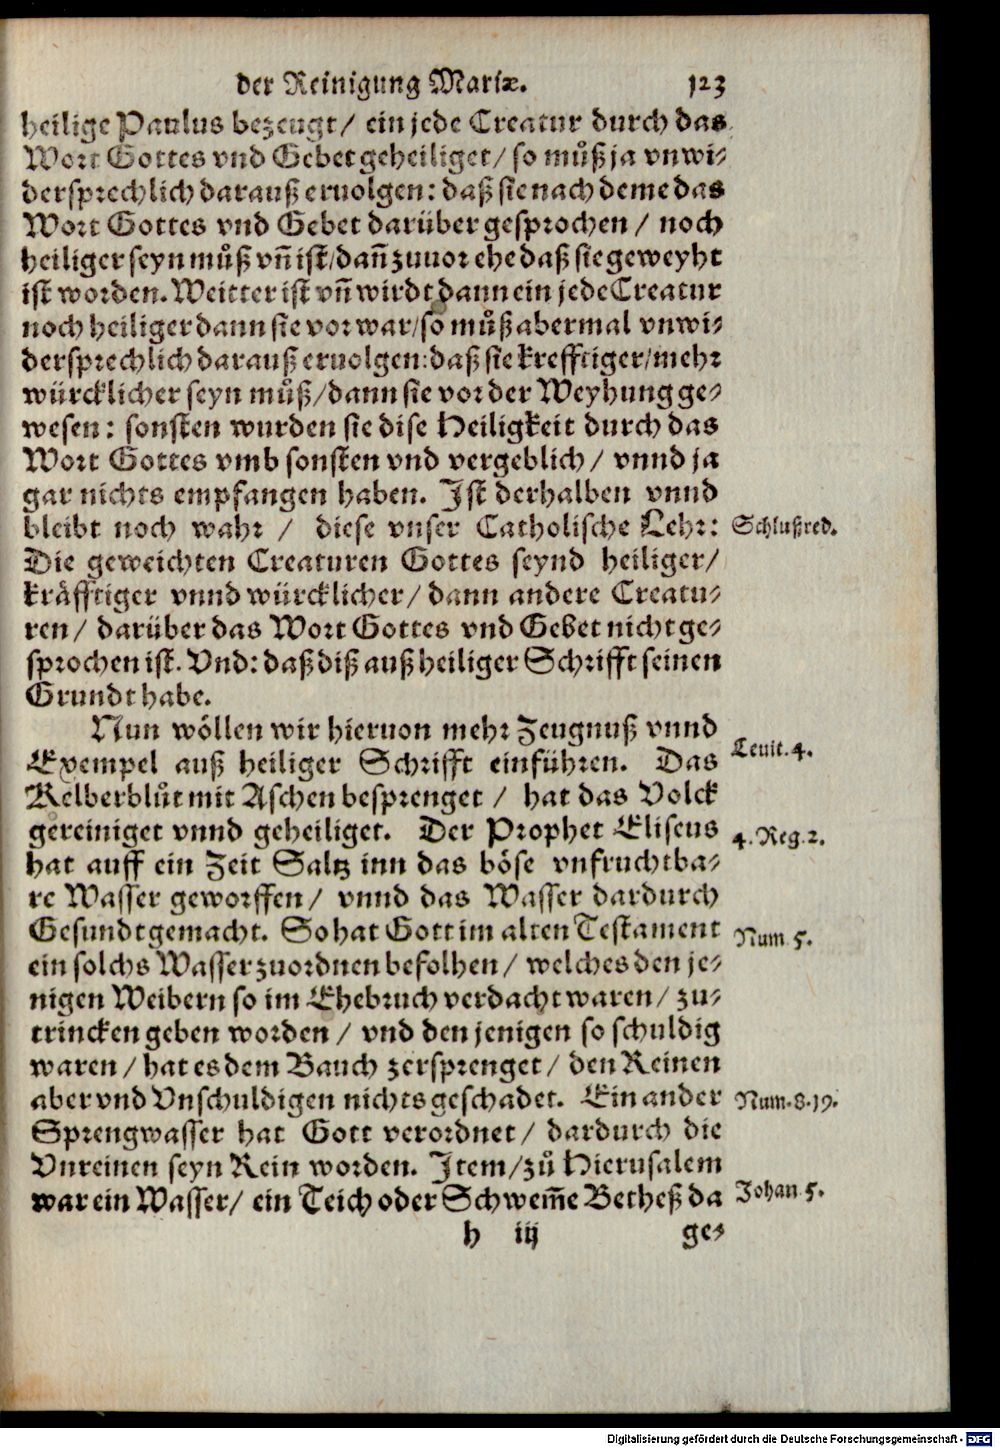 der Reinigung Mariæ. 123
heilige Paulus bezeugt/ ein jede Creatur durch das
Wort Gottes vnd Gebet geheiliget/ so můß ja vnwi-
dersprechlich darauß eruolgen: daß sie nach deme das
Wort Gottes vnd Gebet darüber gesprochen/ noch
heiliger seyn můß vñ ist/ dañ zuuor ehe daß sie geweyht
ist worden. Weitter ist vñ wirdt dann ein jede Creatur
noch heiliger dann sie vor war/ so můß abermal vnwi-
dersprechlich darauß eruolgen: daß sie krefftiger/ mehr
würcklicher seyn můß/ dann sie vor der Weyhung ge-
wesen: sonsten wurden sie dise Heiligkeit durch das
Wort Gottes vmb sonsten vnd vergeblich/ vnnd ja
gar nichts empfangen haben. Ist derhalben vnnd
bleibt noch wahr / diese vnser Catholische Lehr: Schlußred.
Die geweichten Creaturen Gottes seynd heiliger/
kräfftiger vnnd würcklicher/ dann andere Creatu-
ren/ darüber das Wort Gottes vnd Gebet nicht ge-
sprochen ist. Vnd: daß diß auß heiliger Schrifft seinen
Grundt habe.
Nun wöllen wir hieruon mehr Zeugnuß vnnd
Exempel auß heiliger Schrifft einführen. Das Leuit. 4.
Kelberblůt mit Aschen besprenget / hat das Volck
gereiniget vnnd geheiliget. Der Prophet Eliseus 4. Reg. 2.
hat auff ein Zeit Saltz inn das böse vnfruchtba-
re Wasser geworffen/ vnnd das Wasser dardurch
Gesundt gemacht. So hat Gott im alten Testament Num. 5.
ein solchs Wasser zuordnen befolhen/ welches den je-
nigen Weibern so im Ehebruch verdacht waren/ zu-
trincken geben worden / vnd den jenigen so schuldig
waren/ hat es dem Bauch zersprenget/ den Reinen
aber vnd Vnschuldigen nichts geschadet. Ein ander Num. 8. 19.
Sprengwasser hat Gott verordnet/ dardurch die
Vnreinen seyn Rein worden. Item/ zů Hierusalem
war ein Wasser/ ein Teich oder Schwem̃e Betheß da Johan 5.
h iij ge-
Digitalisierung gefördert durch die Deutsche Forschungsgemeinschaft - DFG